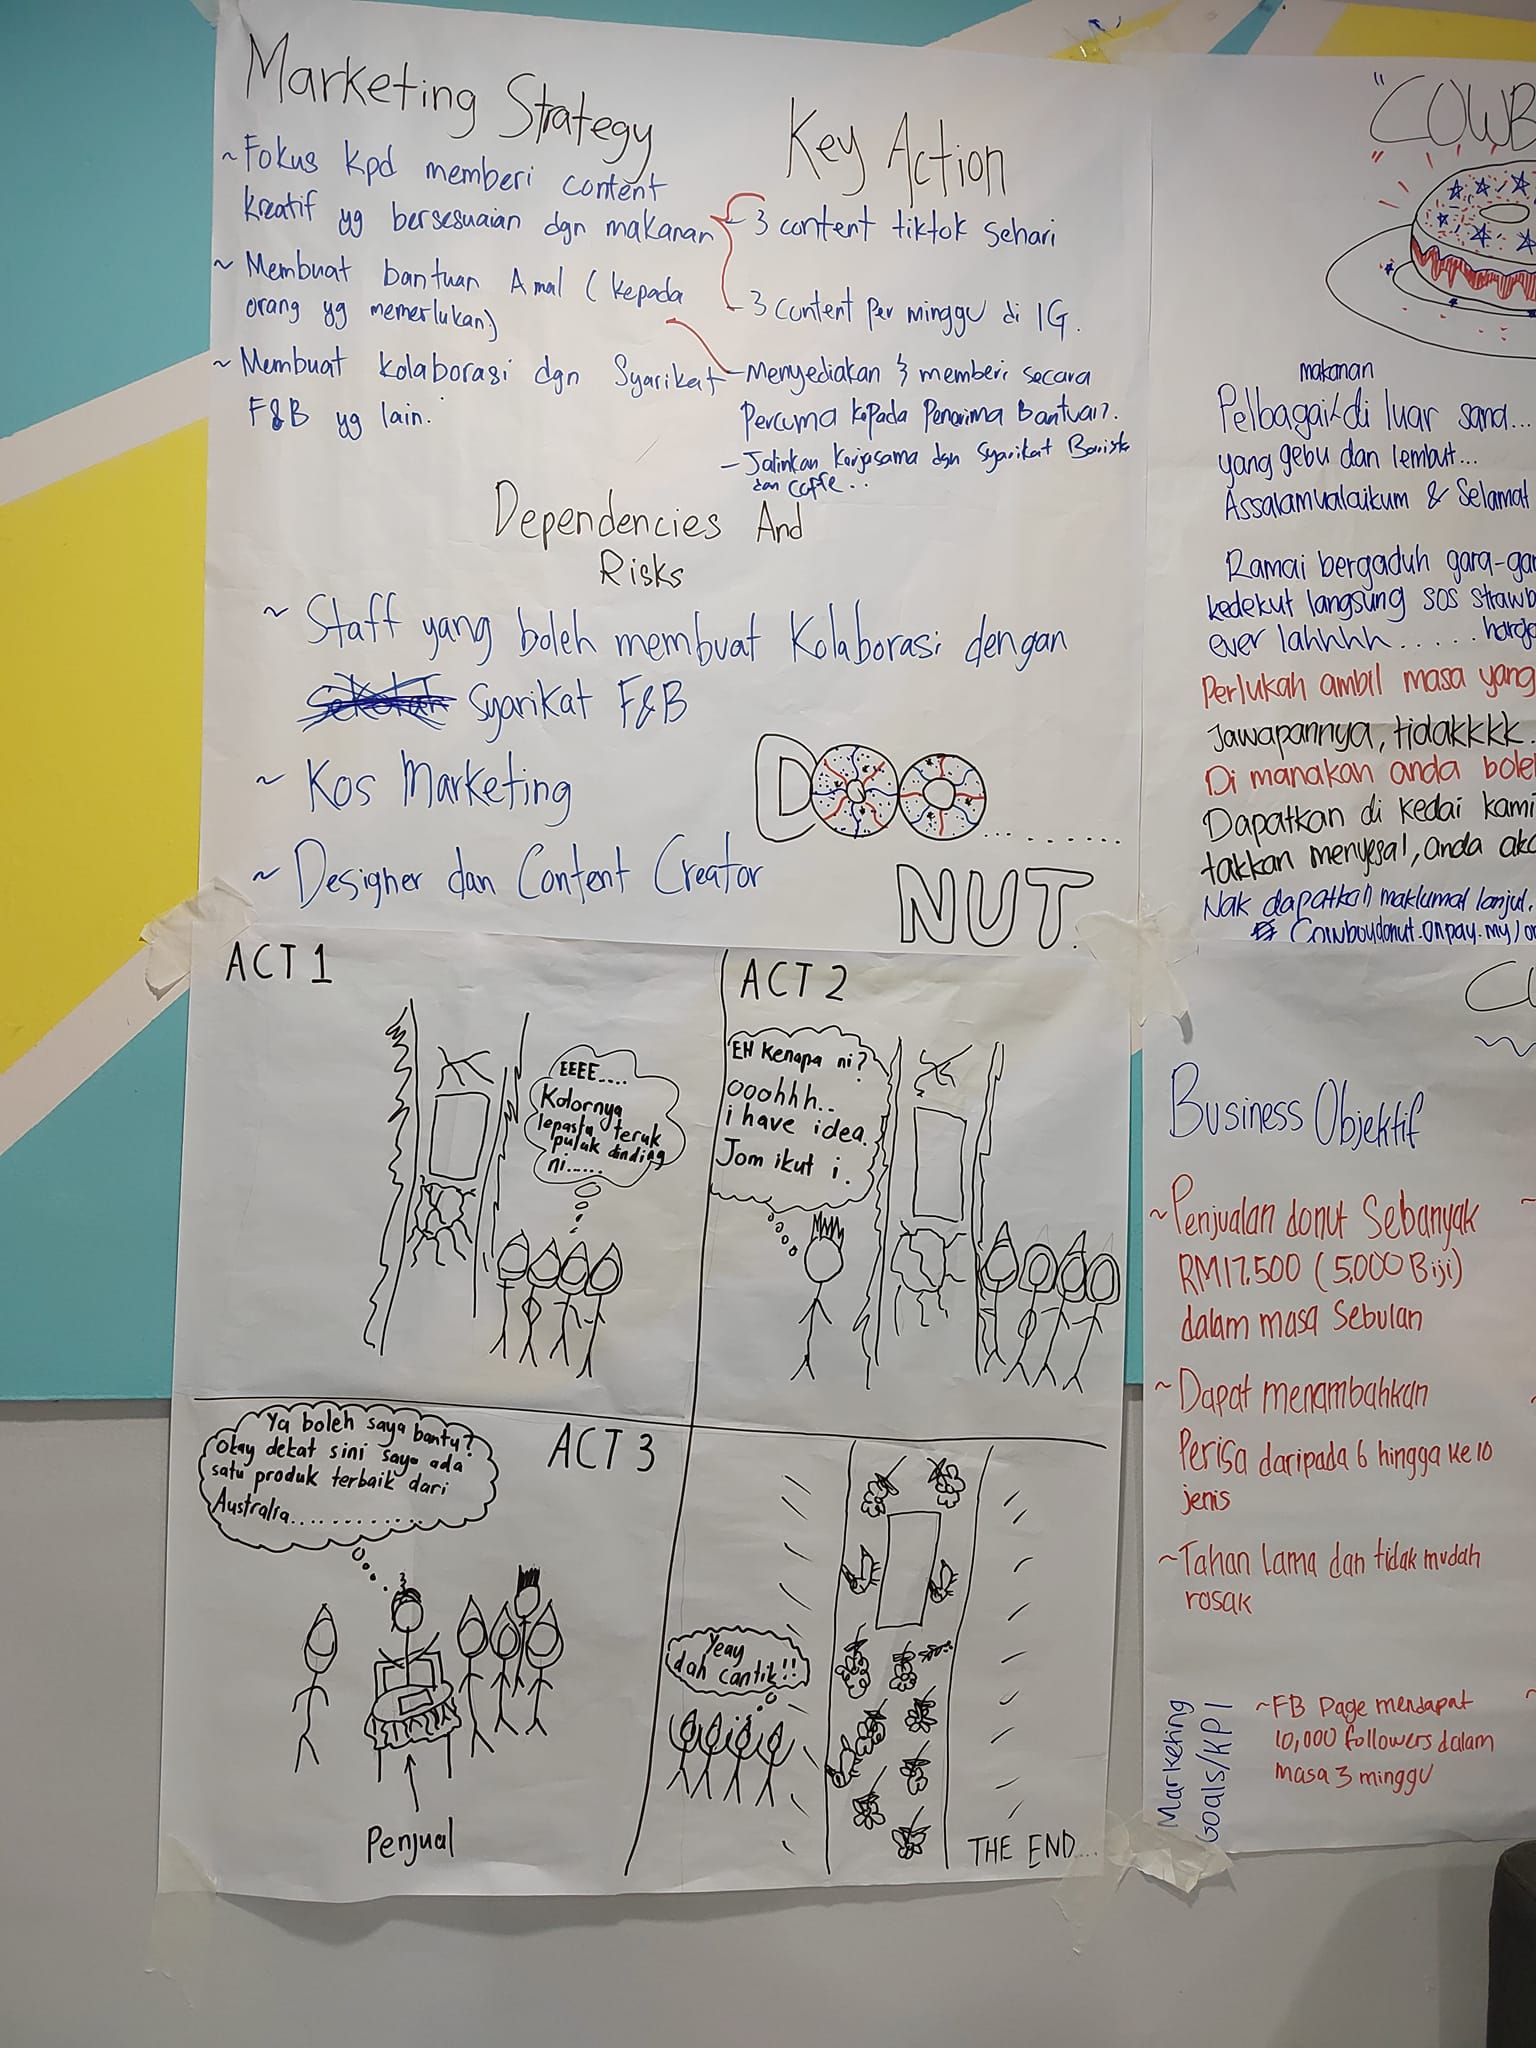 Marketing Strategy
~ Fokus kpd memberi content
kreatif yg bersesuaian dgn makanan
~ Membuat bantuan Amal (kepada
orang yg memerlukan)
~ Membuat kolaborasi dgn Syarikat
F&B yg lain.
Key Action
- 3 content tiktok sehari
- 3 content Per minggu di IG.
- Menyediakan & memberi secara
Percuma kepada Penerima Bantuan.
- Jalinkan Kerjasama dgn Syarikat Barista
dan Coffe...
Dependencies And
Risks
~ Staff yang boleh membuat Kolaborasi dengan
Syarikat F&B
~ Kos Marketing
~ Designer dan Content Creator
DOO.........
NUT.
"COWB
makanan
Pelbagai di luar sana...
yang gebu dan lembut...
Assalamualaikum & Selamat
Ramai bergaduh gara-gar
kedekut langsung sos strawb
ever lahhhh...... harga
Perlukah ambil masa yang
Jawapannya, tidakkkk.
Di manakan anda bole
Dapatkan di kedai kami
takkan menyesal, anda aka
Nak dapatkan maklumat lanjut.
Cowboydonut.onpay.my/or
ACT 1
EEEE....
Kolornya
lepastu teruk
pulak dinding
ni......
ACT 2
EH Kenapa ni?
Ooohhh..
i have idea.
Jom ikut i.
ACT 3
Ya boleh saya bantu?
Okay dekat sini saya ada
satu produk terbaik dari
Australia.............
Penjual
Yeay
dah cantik!!
THE END....
Business Objektif
~ Penjualan donut Sebanyak
RM17.500 (5.000 Biji)
dalam masa Sebulan
~ Dapat menambahkan
Perisa daripada 6 hingga ke 10
jenis
~ Tahan Lama dan tidak mudah
rosak
Marketing
Goals/KPI
~ FB Page mendapat
10,000 followers dalam
masa 3 minggu